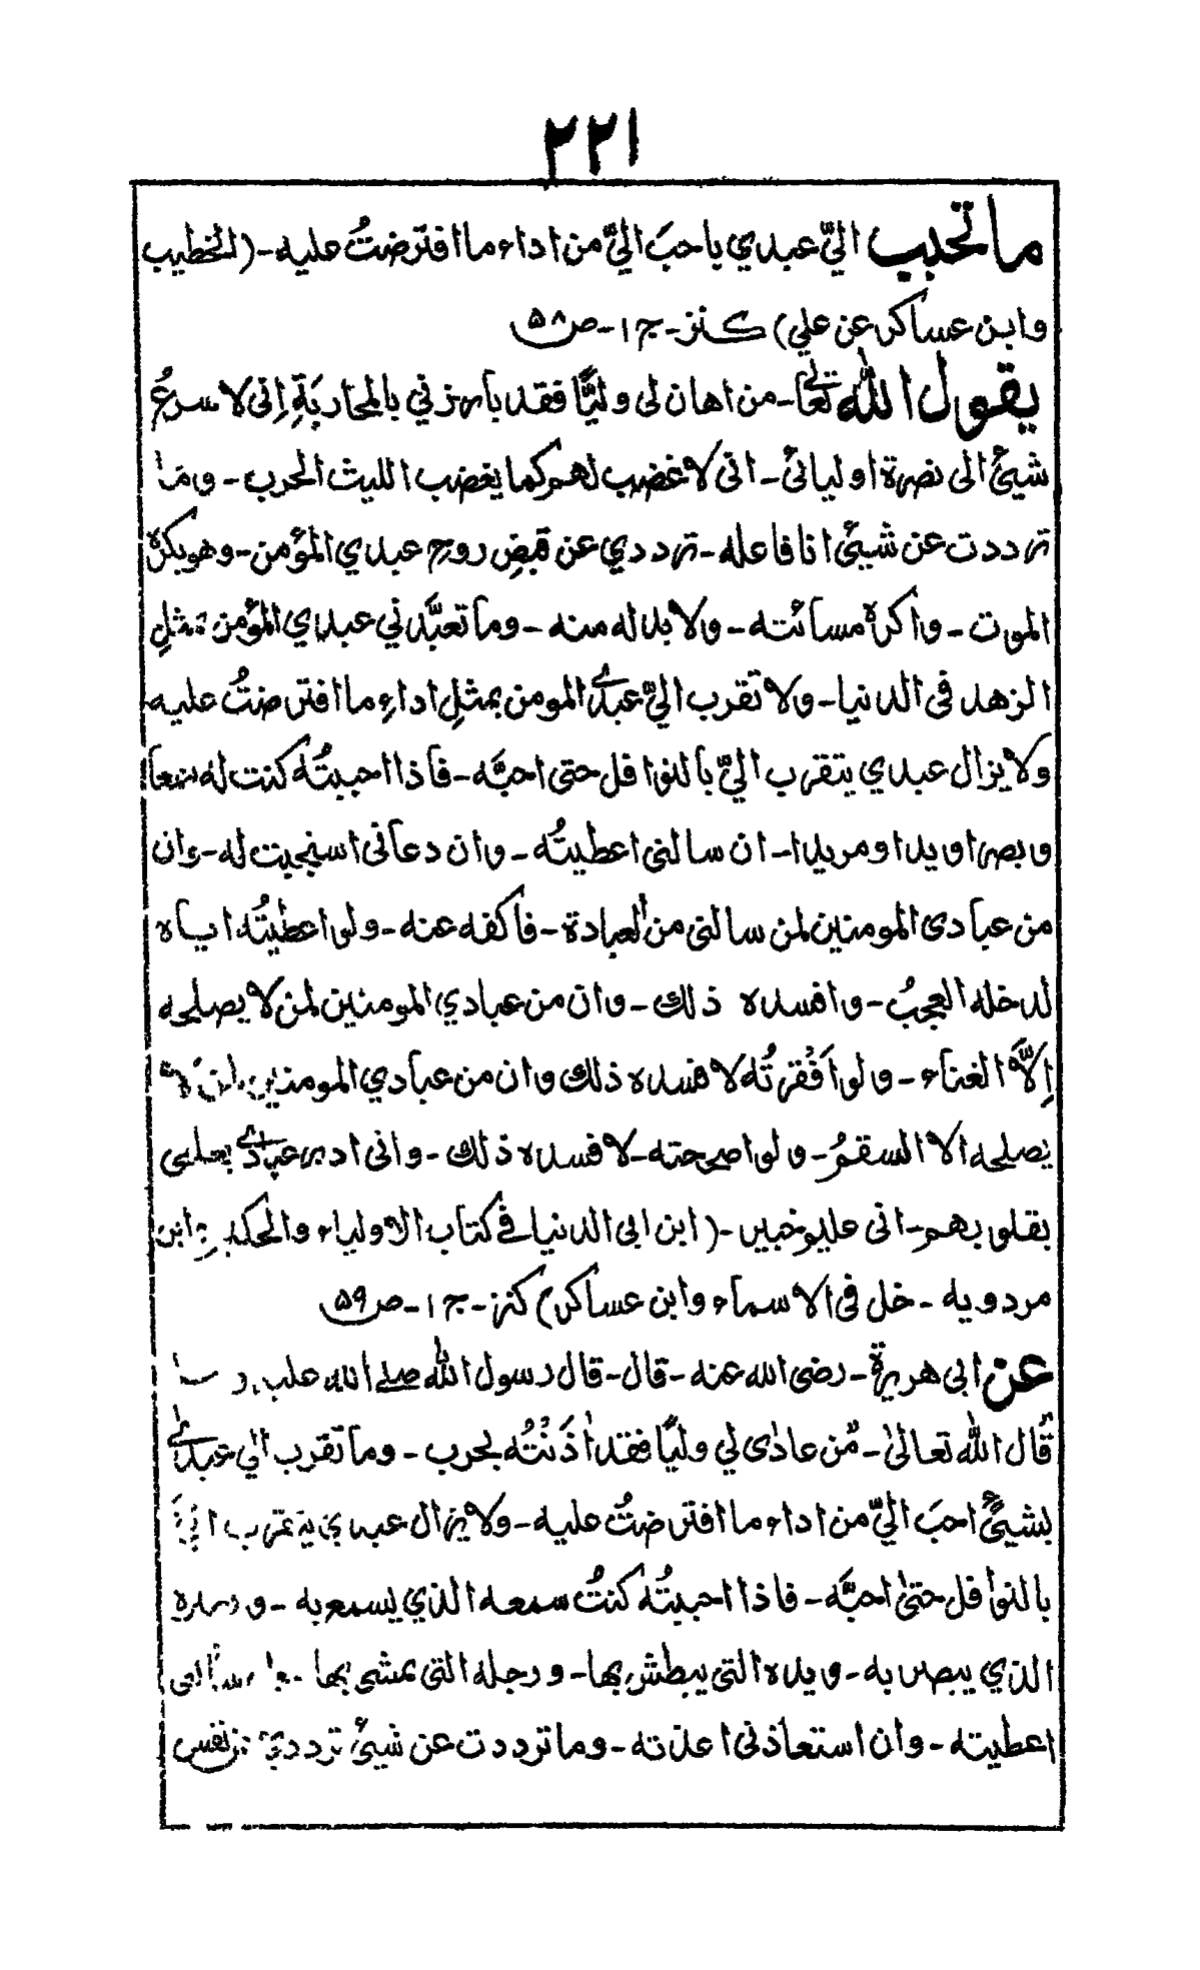 ٢٢١
ما تحبب اليّ عبدي باحبَ اليَّ من اداء ما افترضتُ عليه۔ (الخطيب
وابن عساكر عن علي) كنز۔ ج ١۔ ص ٥٨
يقول الله تعالٰے۔ من اهان لى وليًّا فقد بارزني بالمحاربَةِ اِنى لا سرعُ
شيئ الى نصرة اوليائى۔ انى لاغضب لهم كما يغضب الليث الحرب۔ وما
ترددت عن شيئ انا فاعله۔ ترددي عن قبضِ روح عبدي المؤمن۔ وهو يكره
الموت۔ واكرهُ مسائته۔ ولا بد له منه۔ وما تعبَّدني عبدي المؤمن بمثلِ
الزهد فى الدنيا۔ ولا تقرب اليَّ عبدے المومن بمثلِ اداءِ ما افترضتُ عليه
ولا يزال عبدي يتقرب اليَّ بالنوافل حتى احبَّه۔ فاذا احببتُه كنت له سمعا
وبصرا ويدا ومريدا۔ ان سالنى اعطيتُه۔ وان دعانى استجبت له۔ وان
من عبادى المومنين لمن سالنى من العبادة۔ فاكفه عنه۔ ولو اعطيتُه اياه
لدخله العجبُ۔ وافسده ذلك۔ وان من عبادي المومنين لمن لا يصلحه
اِلّا الغناء۔ ولو اَفْقرتُه لافسده ذلك وان من عبادي المومنين لمن لا
يصلحه الا السقمُ۔ ولو اصححته۔ لافسده ذلك۔ وانى ادبر عبادے بعلمى
بقلوبهم۔ انى عليم خبير۔ (ابن ابى الدنيا فى كتاب الاولياء والحكيم وابن
مردويه۔ حل فى الاسماء وابن عساكر) كنز۔ ج ١۔ ص ٥٩
عن ابى هريرة۔ رضى الله عنه۔ قال۔ قال رسول الله صلے الله عليه
قال الله تعالىٰ۔ مَن عادٰى لي وليًا فقد اٰذَنْتُه بحرب۔ وما تقرب الي عبدے
بشيئٍ احبَ اليَّ من اداء ما افترضتُ عليه۔ ولا يزال عبدي يتقرب
بالنوافل حتىٰ احبَّه۔ فاذا احببتُه كنتُ سمعه الذي يسمع به۔ وبصره
الذي يبصر به۔ ويده التى يبطش بها۔ ورجله التى يمشى بها
اعطيته۔ وان استعاذنى اعذته۔ وما ترددت عن شيئ ترددي نفس